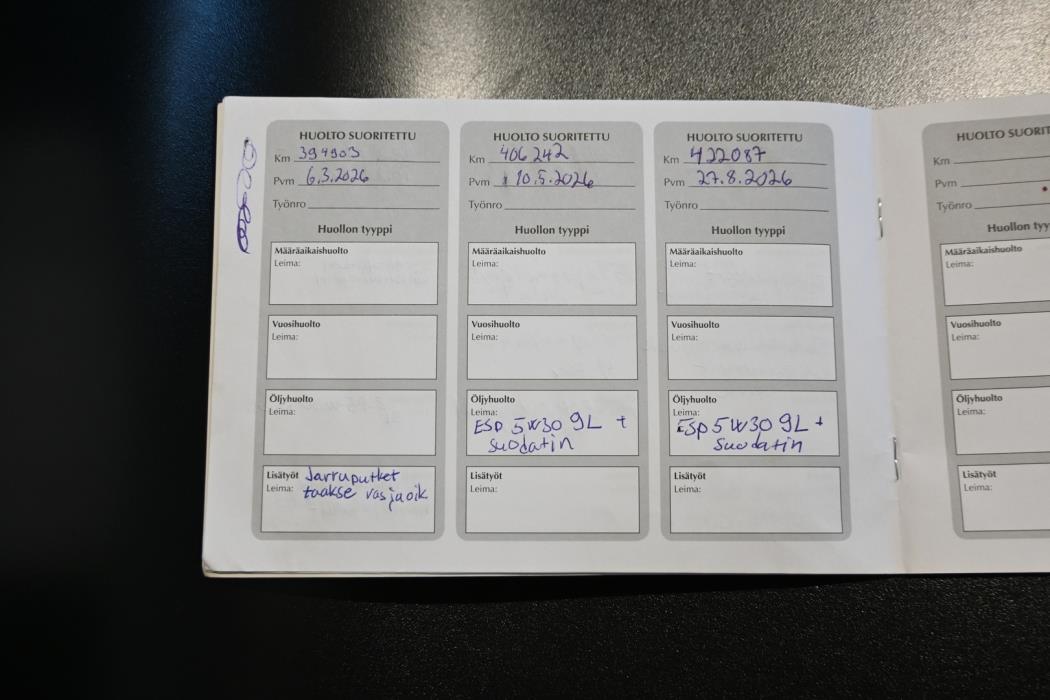 HUOLTO SUORITETTU
Km 394903
Pvm 6.3.2026
Työnro
Huollon tyyppi
Määräaikaishuolto
Leima:
Vuosihuolto
Leima:
Öljyhuolto
Leima:
Lisätyöt Jarruputket
Leima: taakse vas ja oik
HUOLTO SUORITETTU
Km 406242
Pvm 10.5.2026
Huollon tyyppi
Määräaikaishuolto
Leima:
Vuosihuolto
Leima:
Öljyhuolto
Leima:
ESP 5W30 9L +
suodatin
Lisätyöt
Leima:
HUOLTO SUORITETTU
Km 422087
Pvm 27.8.2026
Työnro
Huollon tyyppi
Määräaikaishuolto
Leima:
Vuosihuolto
Leima:
Öljyhuolto
Leima:
ESP 5W30 9L +
Suodatin
Lisätyöt
Leima:
HUOLTO SUORIT
Km
Pvm
Työnro
Huollon tyy
Määräaikaishuolto
Leima:
Vuosihuolto
Leima:
Öljyhuolto
Leima:
Lisätyöt
Leima: